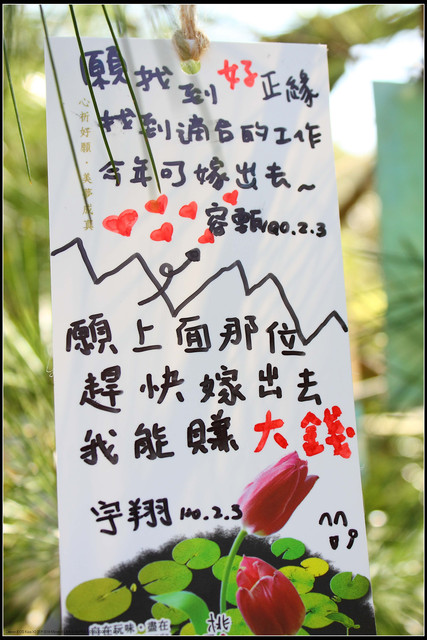 願找到好正緣
找到適合的工作
今年可嫁出去~
心祈好願·美夢成真
容甄 100.2.3
願上面那位
趕快嫁出去
我能賺大錢
宇翔 100.2.3
自在玩味·盡在